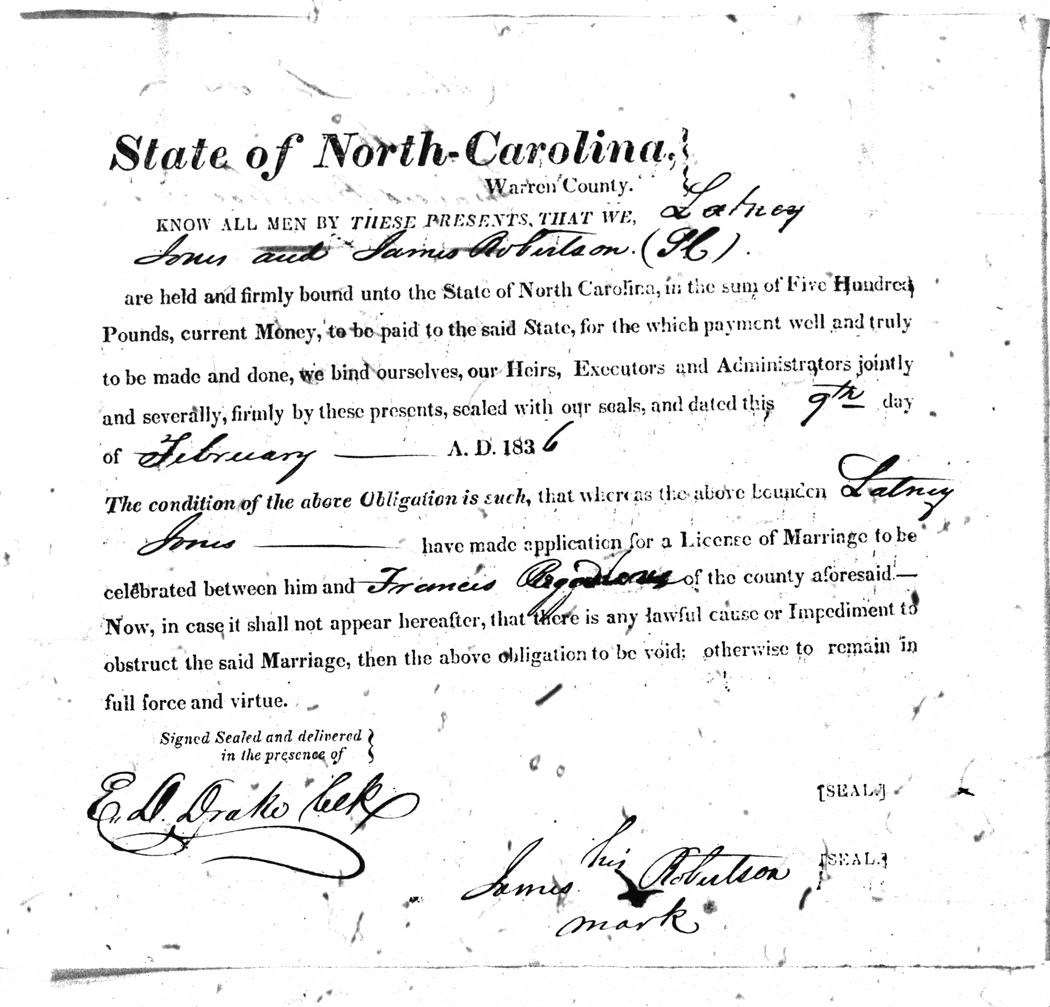 State of North-Carolina,
Warren County.
KNOW ALL MEN BY THESE PRESENTS, THAT WE, Latney
Jones and James Robertson.
are held and firmly bound unto the State of North Carolina, in the sum of Five Hundred
Pounds, current Money, to be paid to the said State, for the which payment well and truly
to be made and done, we bind ourselves, our Heirs, Executors and Administrators jointly
and severally, firmly by these presents, sealed with our seals, and dated this 9th day
of February A. D. 1836
The condition of the above Obligation is such, that whereas the above bounden Latney
Jones have made application for a License of Marriage to be
celebrated between him and Francis of the county aforesaid.—
Now, in case it shall not appear hereafter, that there is any lawful cause or Impediment to
obstruct the said Marriage, then the above obligation to be void; otherwise to remain in
full force and virtue.
Signed Sealed and delivered
in the presence of
E. D. Drake Clk
[SEAL.]
his
James Robertson [SEAL.]
mark